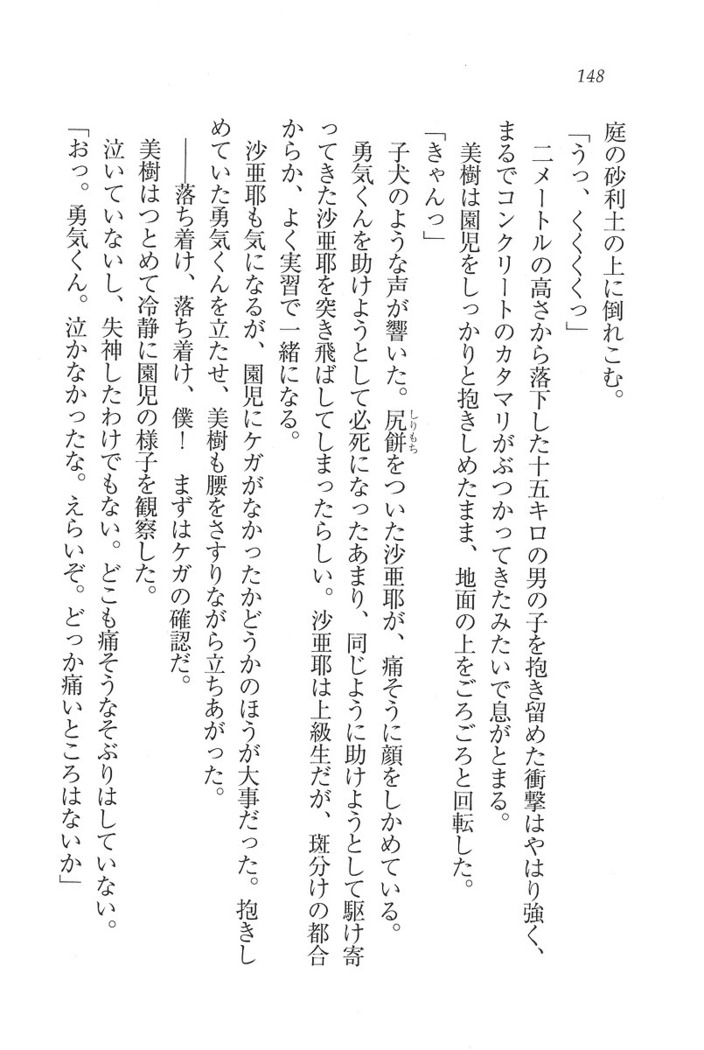 148
庭の砂利土の上に倒れこむ。
「うっ、くくくくっ」
二メートルの高さから落下した十五キロの男の子を抱き留めた衝撃はやはり強く、
まるでコンクリートのカタマリがぶつかってきたみたいで息がとまる。
美樹は園児をしっかりと抱きしめたまま、地面の上をごろごろと回転した。
「きゃんっ」
子犬のような声が響いた。尻餅をついた沙亜耶が、痛そうに顔をしかめている。
しりもち
勇気くんを助けようとして必死になったあまり、同じように助けようとして駆け寄
ってきた沙亜耶を突き飛ばしてしまったらしい。沙亜耶は上級生だが、斑分けの都合
からか、よく実習で一緒になる。
沙亜耶も気になるが、園児にケガがなかったかどうかのほうが大事だった。抱きし
めていた勇気くんを立たせ、美樹も腰をさすりながら立ちあがった。
――落ち着け、落ち着け、僕！　まずはケガの確認だ。
美樹はつとめて冷静に園児の様子を観察した。
泣いていないし、失神したわけでもない。どこも痛そうなそぶりはしていない。
「おっ。勇気くん。泣かなかったな。えらいぞ。どっか痛いところはないか」